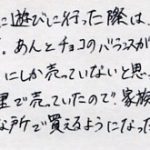 に遊びに行った際は、
。あんとチョコのバランスが
にしか売っていないと思っ
里で売っていたので家族
な所で買えるようになった